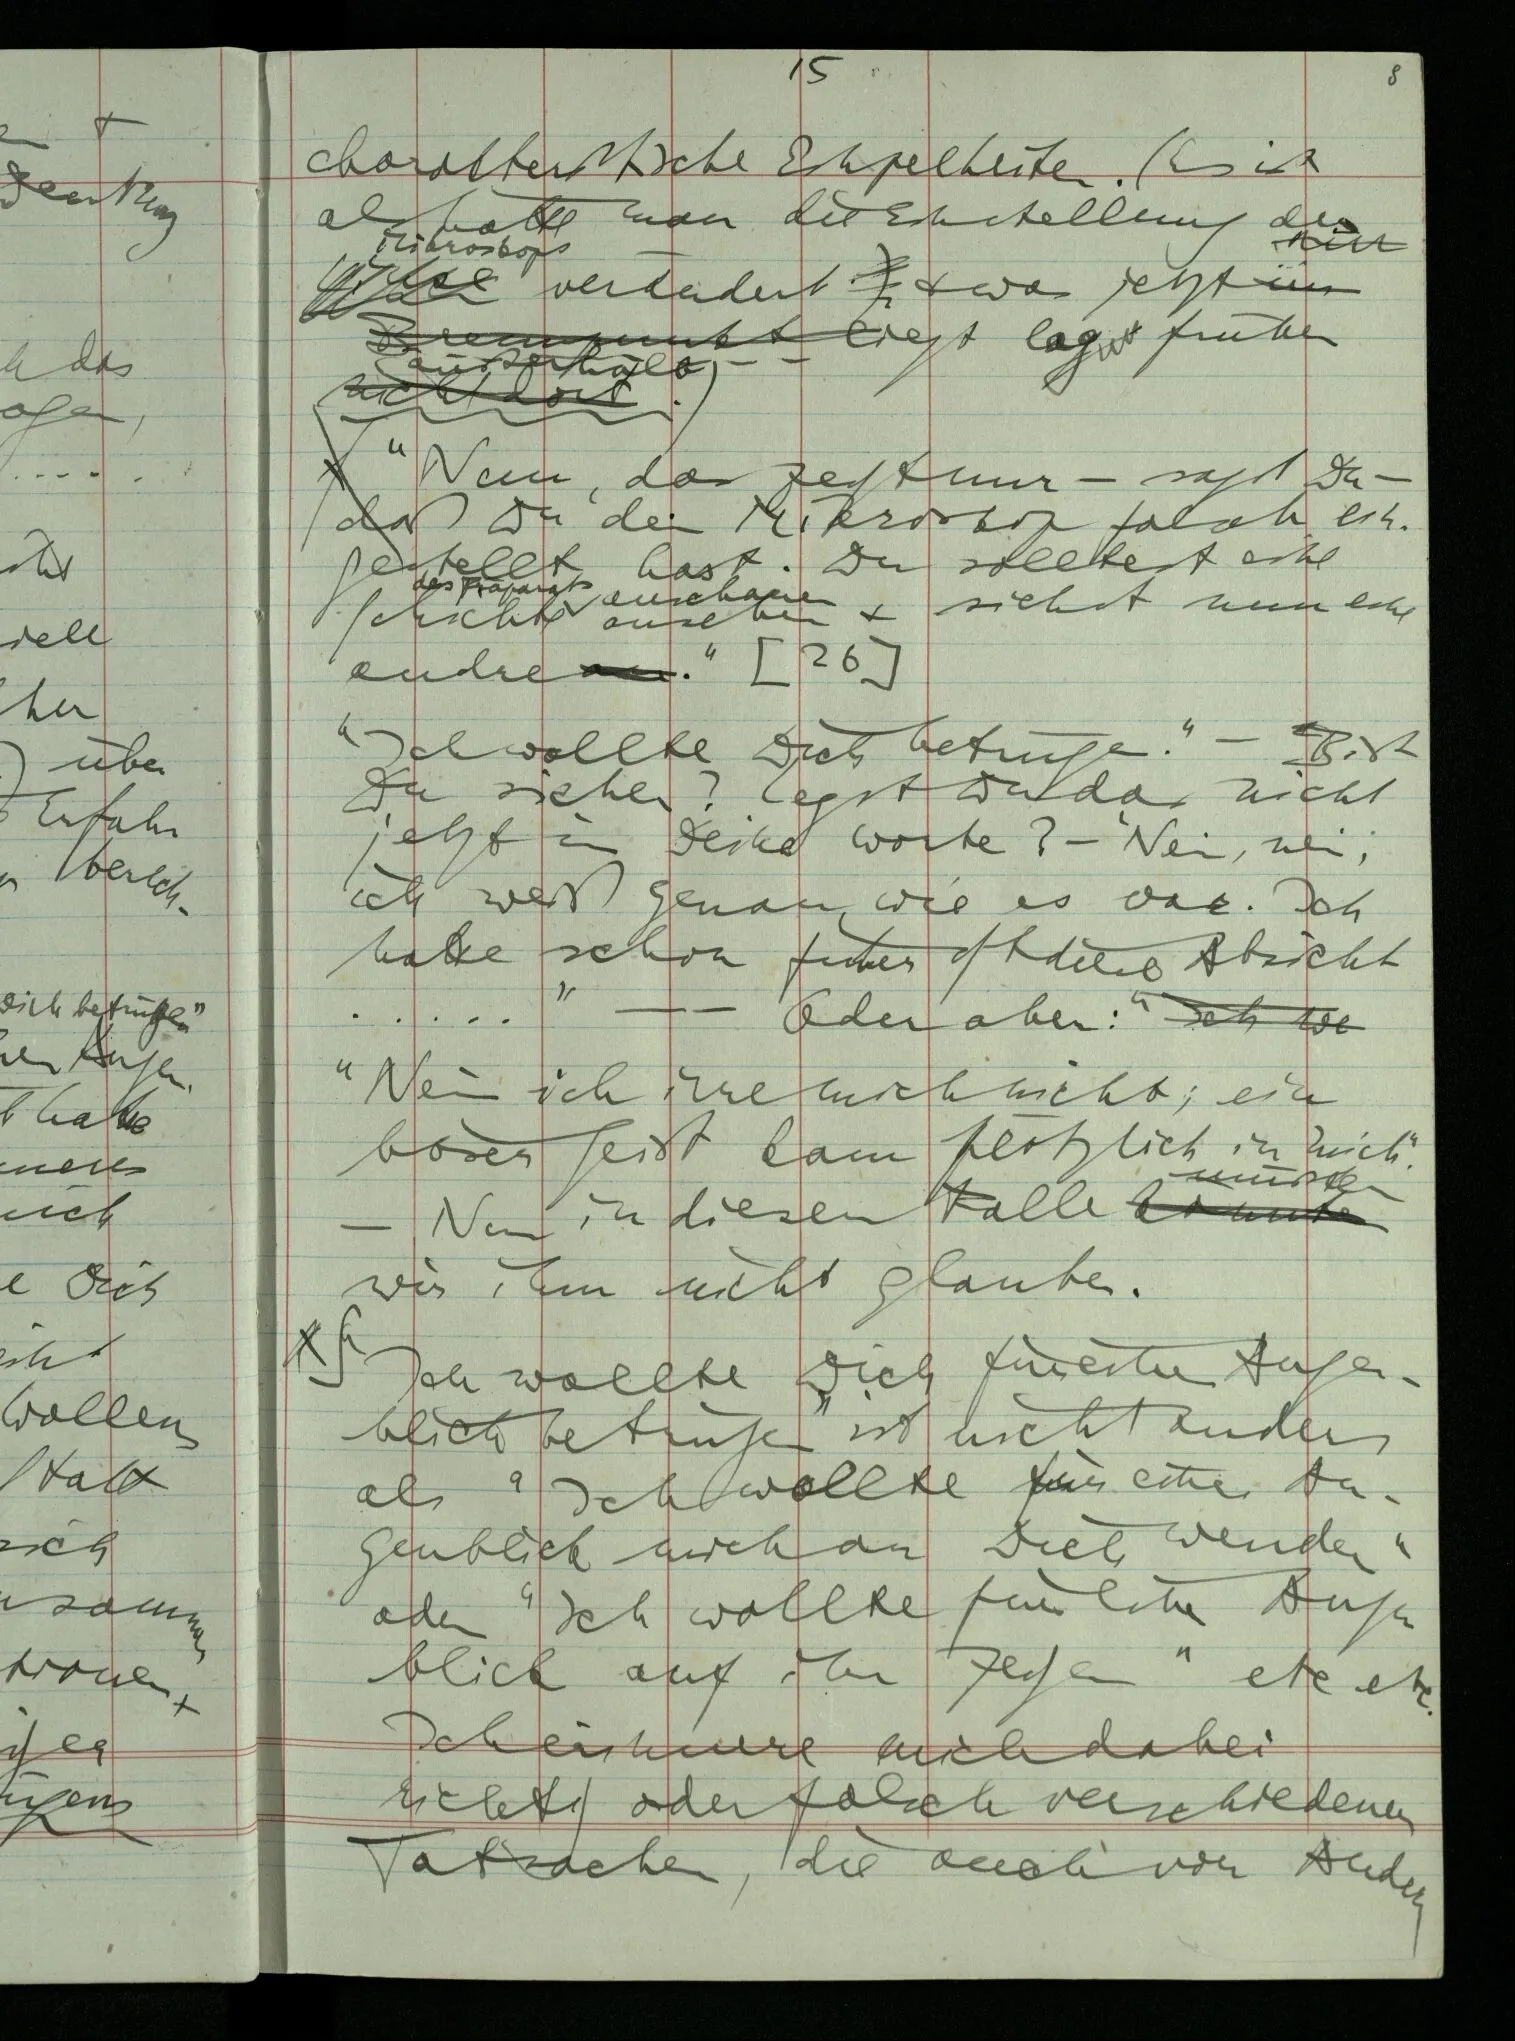 15
8
charakteristische Einzelheiten. (Es ist
als hätte man die Einstellung des
Mikroskops
verändert & was jetzt im
Brennpunkt liegt lag früher
außerhalb
nicht dort.)
"Nun, das zeigt nur – sagt Du –
daß Du dein Mikroskop falsch ein-
gestellt hast. Du solltest eine
des Präparats anschauen
Schichte ansehen & siehst nun eine
andre." [26]
"Ich wollte Dich betrügen." – Bist
Du sicher? legst Du das nicht
jetzt in Deine Worte? – "Nein, nein;
ich weiß genau, wie es war. Ich
hatte schon früher oft diese Absicht
....." –– Oder aber: "Ich wo
"Nein ich irre mich nicht; ein
böser Geist kam plötzlich in mich".
müßten
– Nun in diesem Falle könnten
wir ihm nicht glauben.
"Ich wollte Dich für einen Augen-
blick betrügen" ist nicht anders
als "Ich wollte für einen Au-
genblick mich an Dich wenden"
oder "Ich wollte für einen Augen
blick auf ihn zeigen" etc etc.
Ich erinnere mich dabei
richtig oder falsch verschiedener
Tatsachen, die auch von Andern
über
Erfahr
Dich betrügen"
Wollens